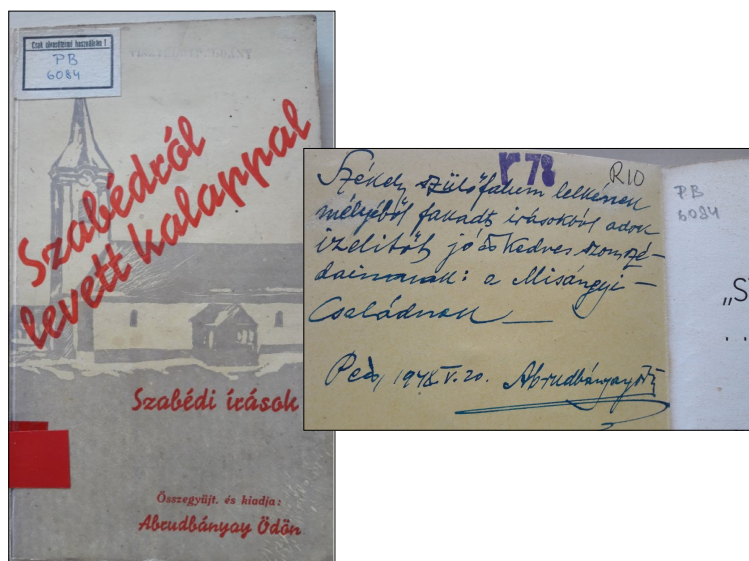 Csak olvastermi használatra !
PB
6084
Szabédról
levett kalappal
Szabédi írások
Összegyüjt. és kiadja:
Abrudbányay Ödön
r 78
R10
Székely szülőfalum lelkének
mélyéből fakadt írásokból adok
izelitőt jó és kedves szomszé-
dainknak: a Misángyi-
Családnak —
Pécs, 1948. V. 20. Abrudbányay
PB
6084
„S
. .